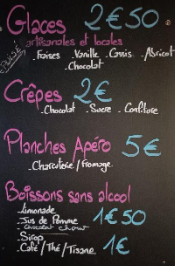 Glaces 2€50
artisanales et locales
. Fraises . Vanille . Cassis . Abricot
. Chocolat
Crêpes 2€
. Chocolat . Sucre . Confiture
Planches Apéro 5€
. Charcuterie/Fromage
Boissons sans alcool
. Limonade
. Jus de Pomme 1€50
. Chocolat chaud
. Sirop
. Café/Thé/Tisane 1€